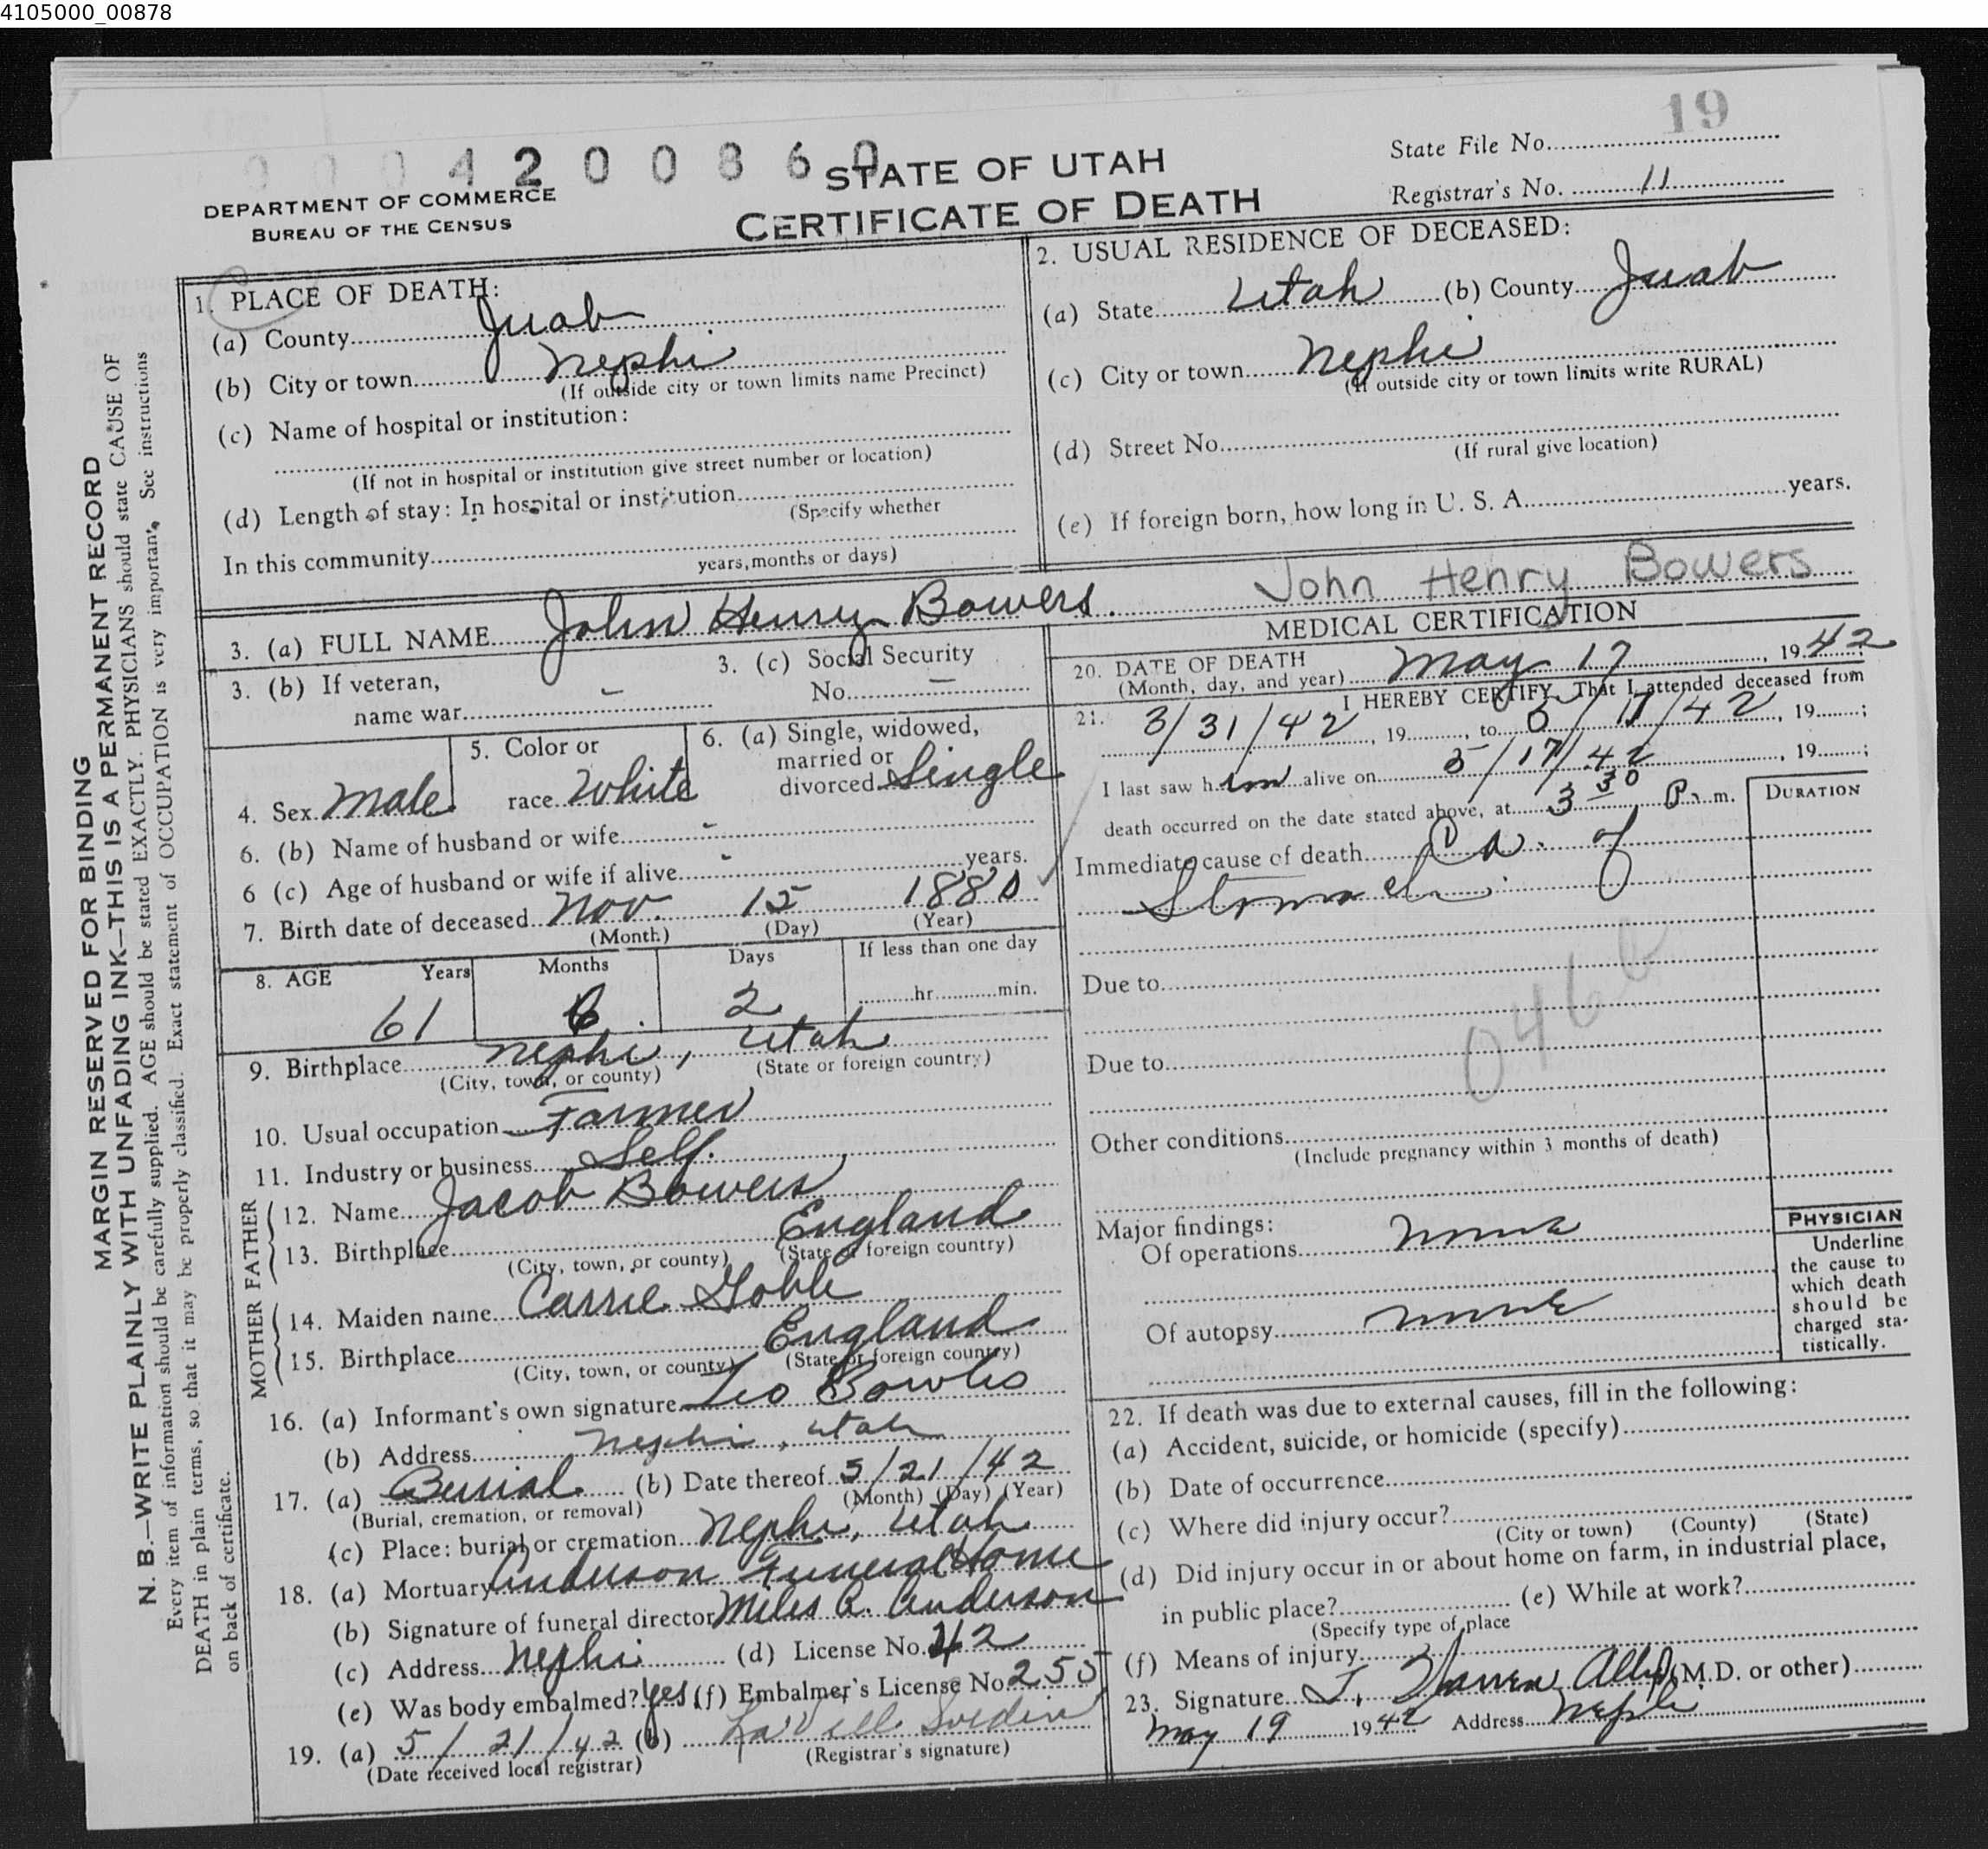 4105000_00878
19
0 0 0 4 2 0 0 8 6 0
State File No.
STATE OF UTAH
DEPARTMENT OF COMMERCE
BUREAU OF THE CENSUS
CERTIFICATE OF DEATH
Registrar's No. 11
MARGIN RESERVED FOR BINDING
N. B.—WRITE PLAINLY WITH UNFADING INK—THIS IS A PERMANENT RECORD
Every item of information should be carefully supplied. AGE should be stated EXACTLY. PHYSICIANS should state CAUSE OF
DEATH in plain terms, so that it may be properly classified. Exact statement of OCCUPATION is very important. See instructions
on back of certificate.
1. PLACE OF DEATH:
(a) County Juab
(b) City or town Nephi
(If outside city or town limits name Precinct)
(c) Name of hospital or institution:
(If not in hospital or institution give street number or location)
(d) Length of stay: In hospital or institution
(Specify whether
In this community
years, months or days)
2. USUAL RESIDENCE OF DECEASED:
(a) State Utah (b) County Juab
(c) City or town Nephi
(If outside city or town limits write RURAL)
(d) Street No.
(If rural give location)
(e) If foreign born, how long in U. S. A. years.
3. (a) FULL NAME John Henry Bowers. John Henry Bowers
3. (b) If veteran,
name war –
3. (c) Social Security
No. –
4. Sex Male
5. Color or
race White
6. (a) Single, widowed,
married or
divorced Single
6. (b) Name of husband or wife -
6 (c) Age of husband or wife if alive - years.
7. Birth date of deceased Nov. 15 1880
(Month) (Day) (Year)
8. AGE Years Months Days If less than one day
61 6 2 hr. min.
9. Birthplace Nephi, Utah
(City, town, or county) (State or foreign country)
10. Usual occupation Farmer
11. Industry or business Self.
FATHER
12. Name Jacob Bowers
13. Birthplace England
(City, town, or county) (State or foreign country)
MOTHER
14. Maiden name Carrie Goble
15. Birthplace England
(City, town, or county) (State or foreign country)
16. (a) Informant's own signature Leo Bowles
(b) Address Nephi, Utah
17. (a) Burial (b) Date thereof 5/21/42
(Burial, cremation, or removal) (Month) (Day) (Year)
(c) Place: burial or cremation Nephi, Utah
18. (a) Mortuary Anderson Funeral Home
(b) Signature of funeral director Miles R. Anderson
(c) Address Nephi (d) License No. 42
(e) Was body embalmed? Yes (f) Embalmer's License No. 255
19. (a) 5/21/42 (b) LaVell
(Date received local registrar) (Registrar's signature)
MEDICAL CERTIFICATION
20. DATE OF DEATH
(Month, day, and year) May 17, 1942
21. I HEREBY CERTIFY, That I attended deceased from
3/31/42, 19 , to 5/17/42, 19 ;
I last saw him alive on 5/17/42, 19 ;
death occurred on the date stated above, at 3 30 P. m.
DURATION
Immediate cause of death Ca. of
Stomach
Due to
046b
Due to
Other conditions
(Include pregnancy within 3 months of death)
Major findings:
Of operations none
Of autopsy none
PHYSICIAN
Underline
the cause to
which death
should be
charged sta-
tistically.
22. If death was due to external causes, fill in the following:
(a) Accident, suicide, or homicide (specify)
(b) Date of occurrence
(c) Where did injury occur?
(City or town) (County) (State)
(d) Did injury occur in or about home on farm, in industrial place,
in public place? (e) While at work?
(Specify type of place
(f) Means of injury
23. Signature (M.D. or other)
May 19 1942 Address Nephi